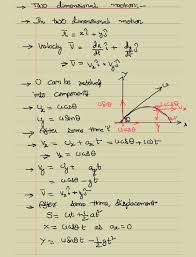 → Two dimensional motion
→ In two dimensional motion
x̄ = xî + yĵ
→ Velocity v̄ = dx/dt î + dy/dt ĵ
⇒ v̄ = vₓî + vᵧĵ
→ U can be resolved
into components
→ uₓ = ucosθ
uᵧ = usinθ
→ After some time t
→ vₓ = uₓ + aₓt = ucosθ + 0t
⇒ vₓ = ucosθ
→ v̄ = vₓî + vᵧĵ
→ vᵧ = uᵧ + aᵧt
vᵧ = usinθ - gt
→ After some time, displacement
S = ut + ½at²
X = ucosθt as aₓ = 0
Y = usinθt - ½gt²